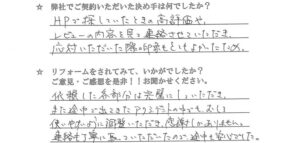 ☆ 弊社でご契約いただいた決め手は何でしたか?
HPで探していたときの高評価や、
レビューの内容を見て連絡させていただき、
応対いただいた際の印象もとてもよかったため。
☆ リフォームをされてみて、いかがでしたか?
ご意見・ご感想を是非!!お聞かせください。
依頼した各部分は完璧にしていただき、
また途中で出てきたアクシデントの中でも、おして
使いやすいように調整いただき、感謝しかありません。
連絡も丁寧に取っていただいたので、途中も安心でした。